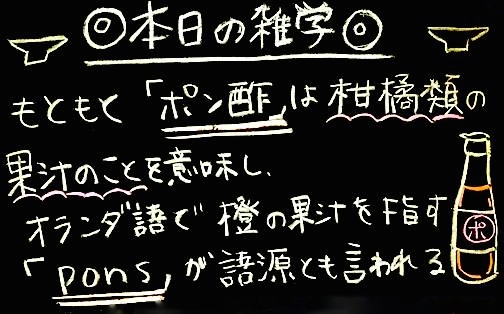 ◎本日の雑学◎
もともと「ポン酢」は柑橘類の
果汁のことを意味し、
オランダ語で橙の果汁を指す
「pons」が語源とも言われる
ポ